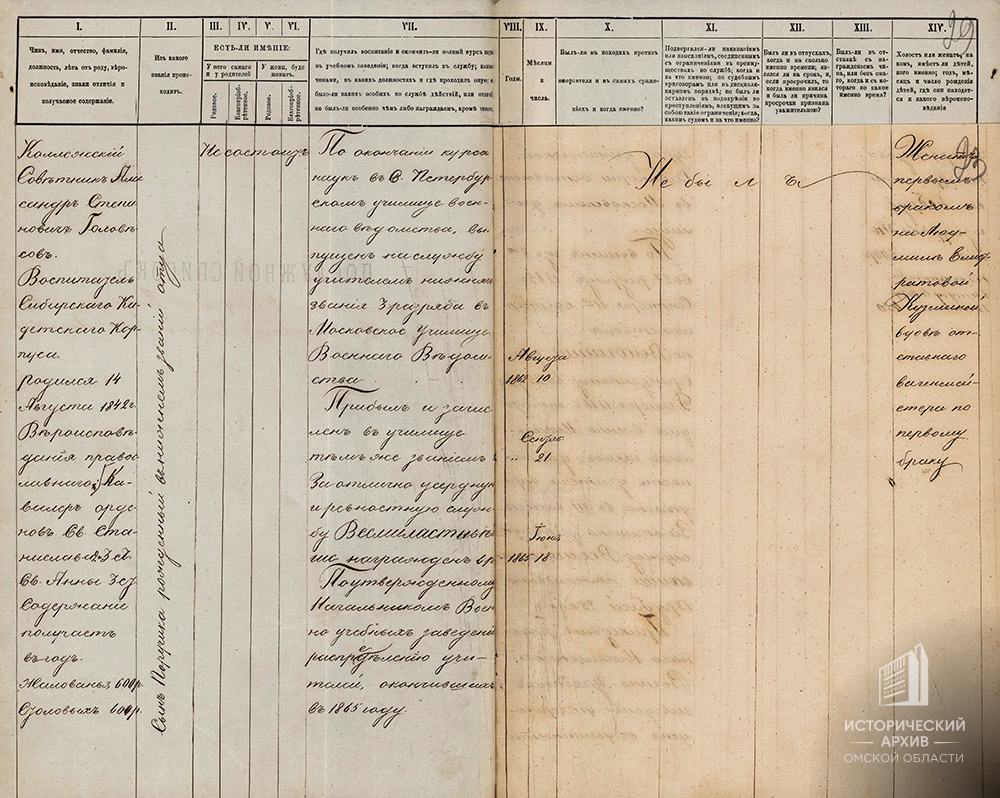 I.
II.
III.
IV.
V.
VI.
VII.
VIII.
IX.
X.
XI.
XII.
XIII.
XIV.
Чинъ, имя, отчество, фамилія,
должность, лѣта отъ роду, вѣро-
исповѣданіе, знаки отличія и
получаемое содержаніе.
Изъ какого
званія проис-
ходитъ.
ЕСТЬ-ЛИ ИМѢНІЕ:
У него самаго
и у родителей
У жены, буде
женатъ.
Родовое.
Благопріоб-
рѣтенное.
Родовое.
Благопріоб-
рѣтенное.
Гдѣ получилъ воспитаніе и окончилъ-ли полный курсъ
въ учебномъ заведеніи; когда вступилъ въ службу;
чинами, въ какихъ должностяхъ и гдѣ проходилъ
было-ли какихъ особыхъ по службѣ дѣйствій, или
не былъ-ли особенно чѣмъ либо награжденъ, кромѣ
Годы.
Мѣсяцы
и
числа.
Былъ-ли въ походахъ противъ
непріятеля и въ самыхъ сраже-
ніяхъ и когда именно?
Подвергался-ли наказаніямъ
или взысканіямъ, соединеннымъ
съ ограниченіями въ преиму-
ществахъ по службѣ; когда и
за что именно; по судебнымъ
приговорамъ или въ дисципли-
нарномъ порядкѣ; не былъ ли
оставленъ въ подозрѣніи по
преступленіямъ, влекущимъ за
собою такія ограниченія; когда,
какимъ судомъ и за что именно?
Былъ ли въ отпускахъ,
когда и на сколько
именно времени; яв-
лялся ли на срокъ, и,
если просрочилъ, то
когда именно явился
и была ли причина
просрочки признана
уважительною?
Былъ-ли въ от-
ставкѣ съ на-
гражденіемъ чи-
на, или безъ она-
го, когда и съ ко-
тораго по какое
именно время?
Холостъ или женатъ, на
комъ, имѣетъ ли дѣтей,
кого именно; годъ, мѣ-
сяцъ и число рожденія
дѣтей, гдѣ они находят-
ся и какого вѣроиспо-
вѣданія
Коллежскій
Совѣтникъ Але
сандръ Степа
новичъ
Воспитатель
Сибирскаго Ка-
детскаго Кор-
пуса.
родился 14
Августа 1842 г.
Вѣроисповѣ-
данія право
славнаго, Ка-
валеръ орде
новъ Св. Ста-
нислава 2 и 3 ст.
Св. Анны 3 ст
Содержаніе
получаетъ
въ годъ.
Жалованья 600 р.
Столовыхъ 600 р.
Сынъ Поручика рожденный въ нижнемъ званіи отца
Не состоитъ
По окончаніи курса
наукъ въ С. Петербур
скомъ училище воен-
наго вѣдомства, вы
пущенъ на службу
учителемъ нижняго
званія 3 разряда въ
Московское училище
Военнаго Вѣдом-
ства
Августа
1862 10
Прибылъ и зачис
ленъ въ училище
тѣмъ же званіемъ
21
За отлично усердную
и ревностную служ-
бу Всемилостивѣй
ше награжденъ
Іюня
1865 18
По утвержденному
Начальникомъ Воен
но учебныхъ заведеній
распредѣленію учи-
телей, окончившихъ
въ 1865 году
Не былъ
Женатъ
первымъ
бракомъ
на Люд-
милѣ
Кузминой
вдовѣ от-
ставнаго
вагенмей-
стера по
первому
браку
ИСТОРИЧЕСКИЙ
АРХИВ
ОМСКОЙ ОБЛАСТИ